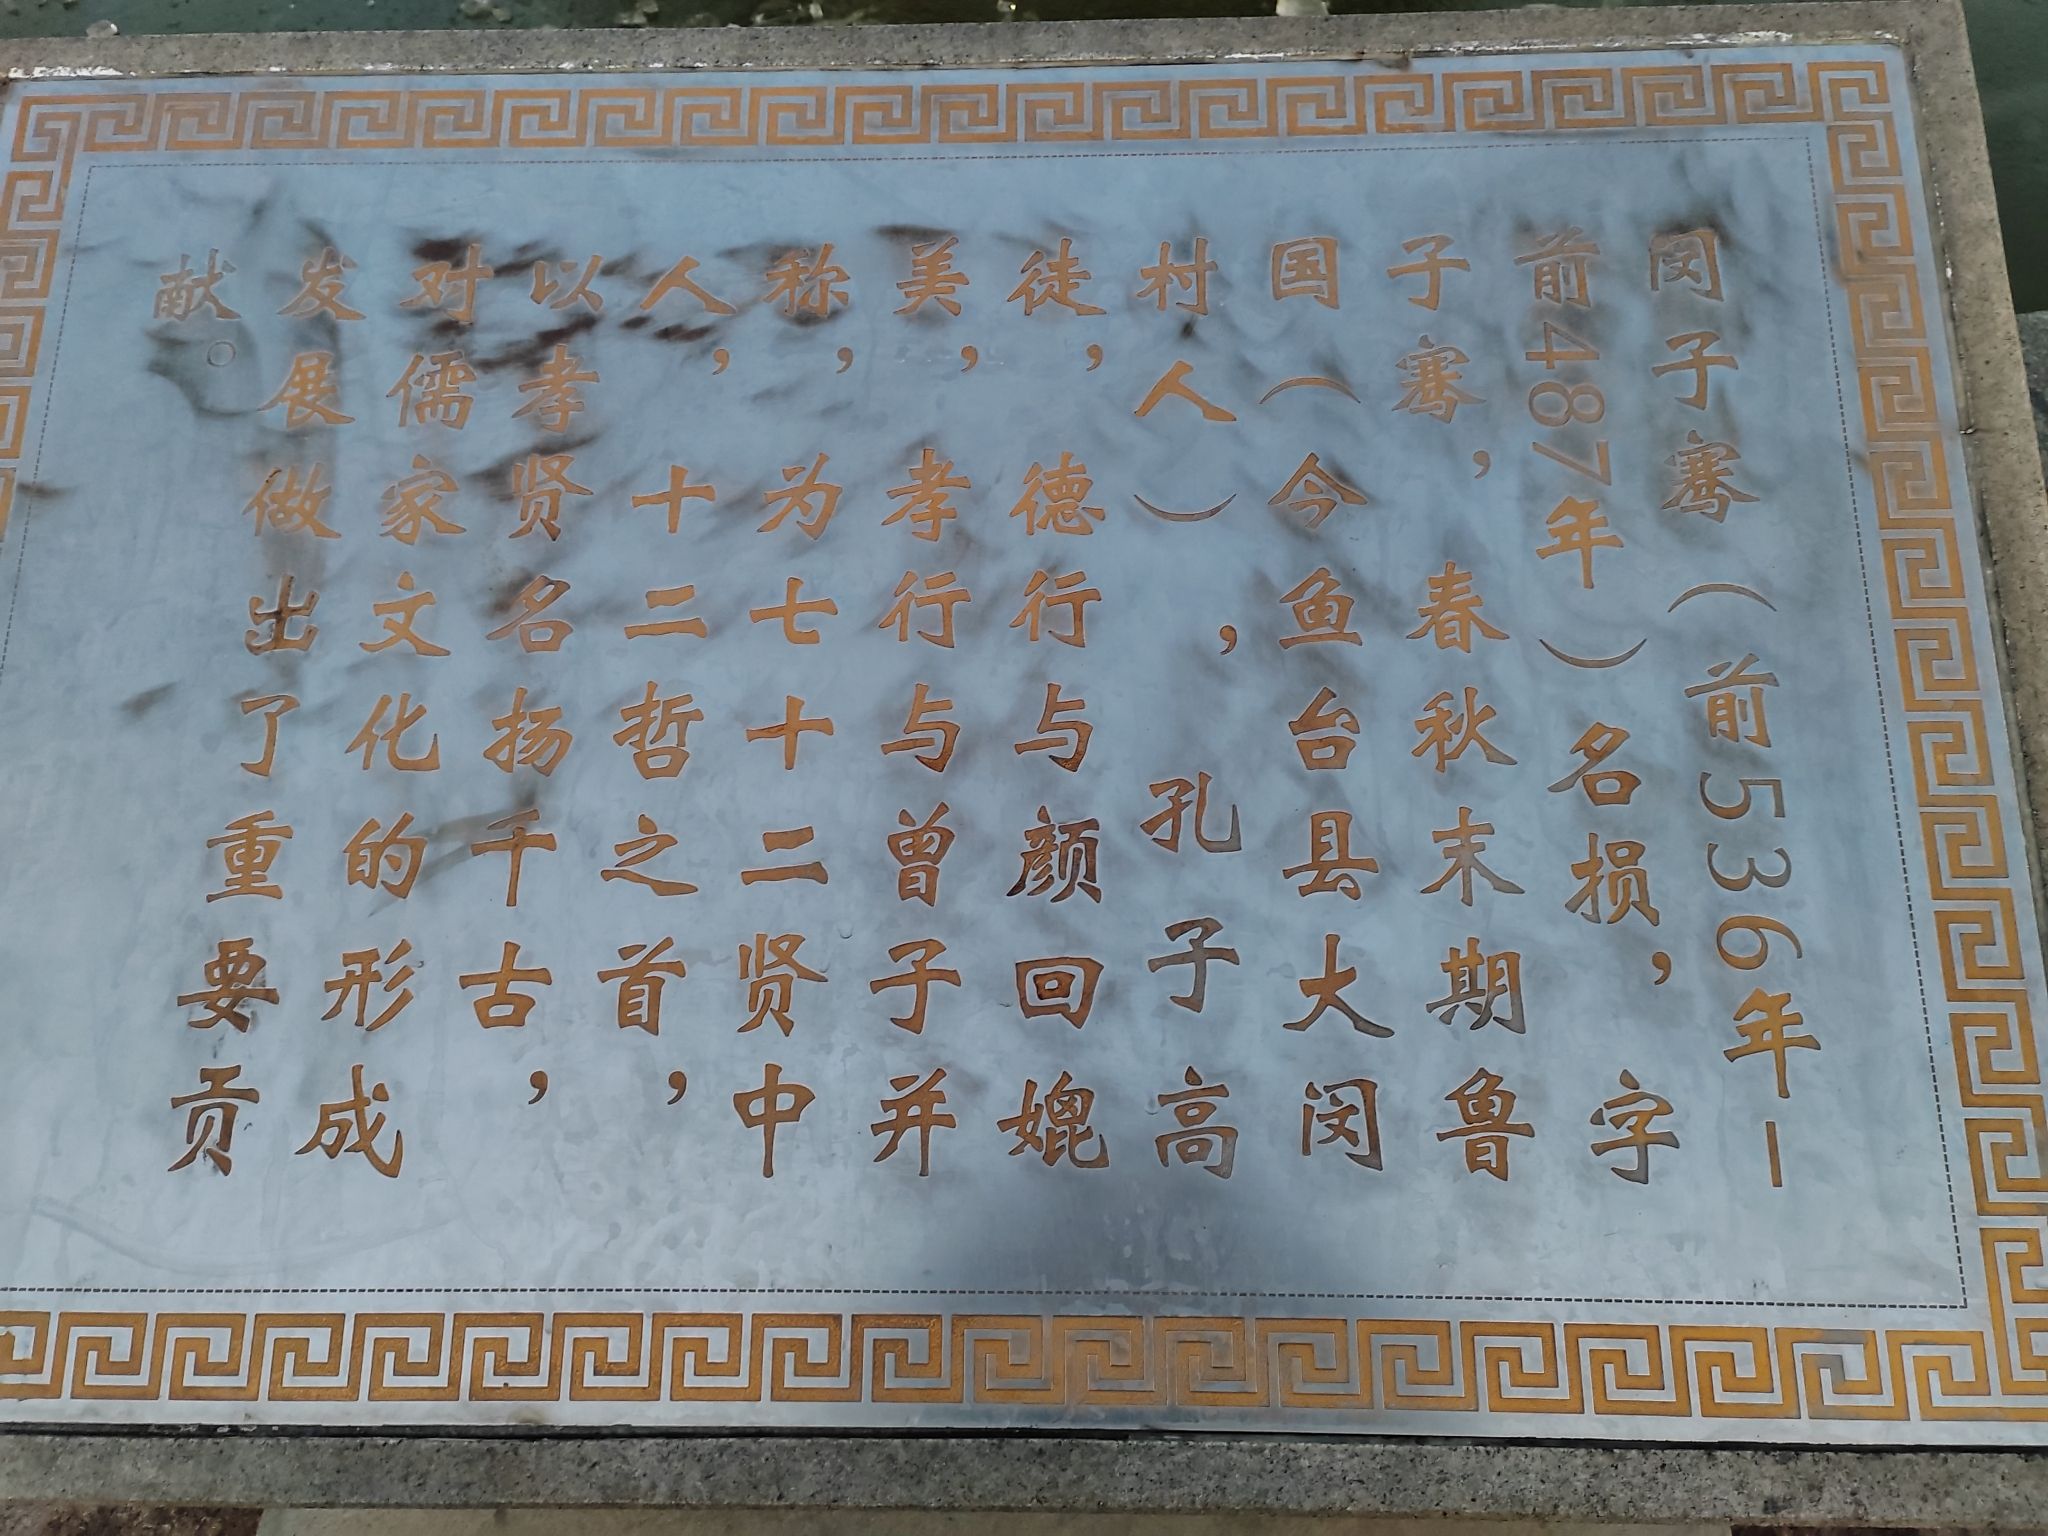 闵子骞（前536年—
前487年）名损，字
子骞，春秋末期鲁
国（今鱼台县大闵
村人），孔子高
徒，德行与颜回媲
美，孝行与曾子并
称，为七十二贤中
人，十二哲之首，
以孝贤名扬千古，
对儒家文化的形成
发展做出了重要贡
献。